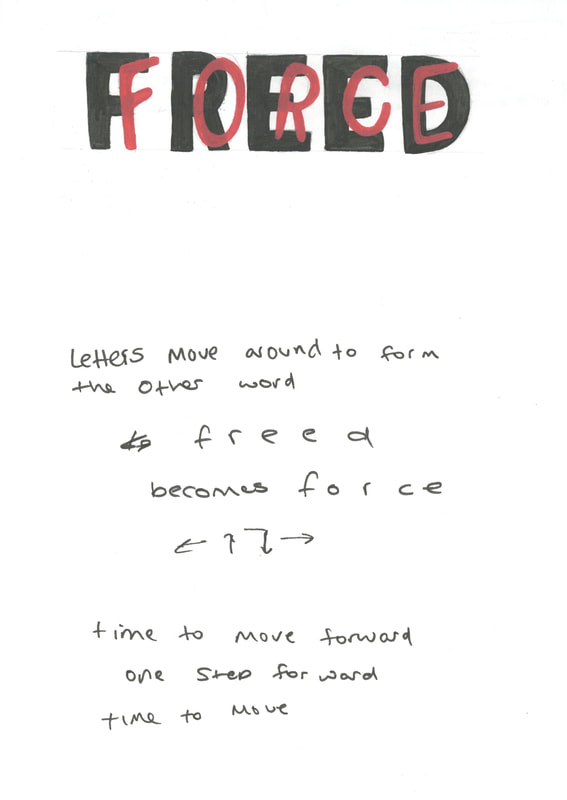 FREED
FORCE
Letters move around to form
the other word
f r e e d
becomes f o r c e
← ↑ ↴ →
time to move forward
one step forward
time to move